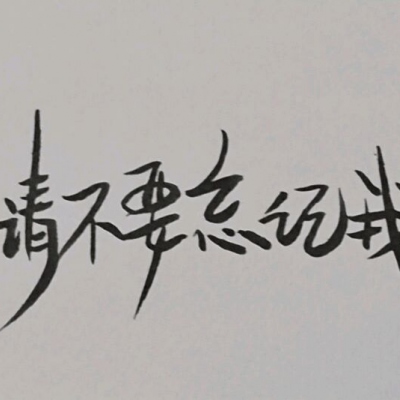 请不要忘记我